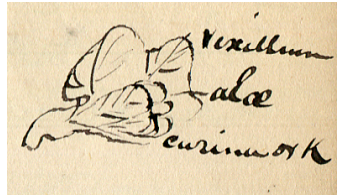 Vexillum
alæ
carina or K